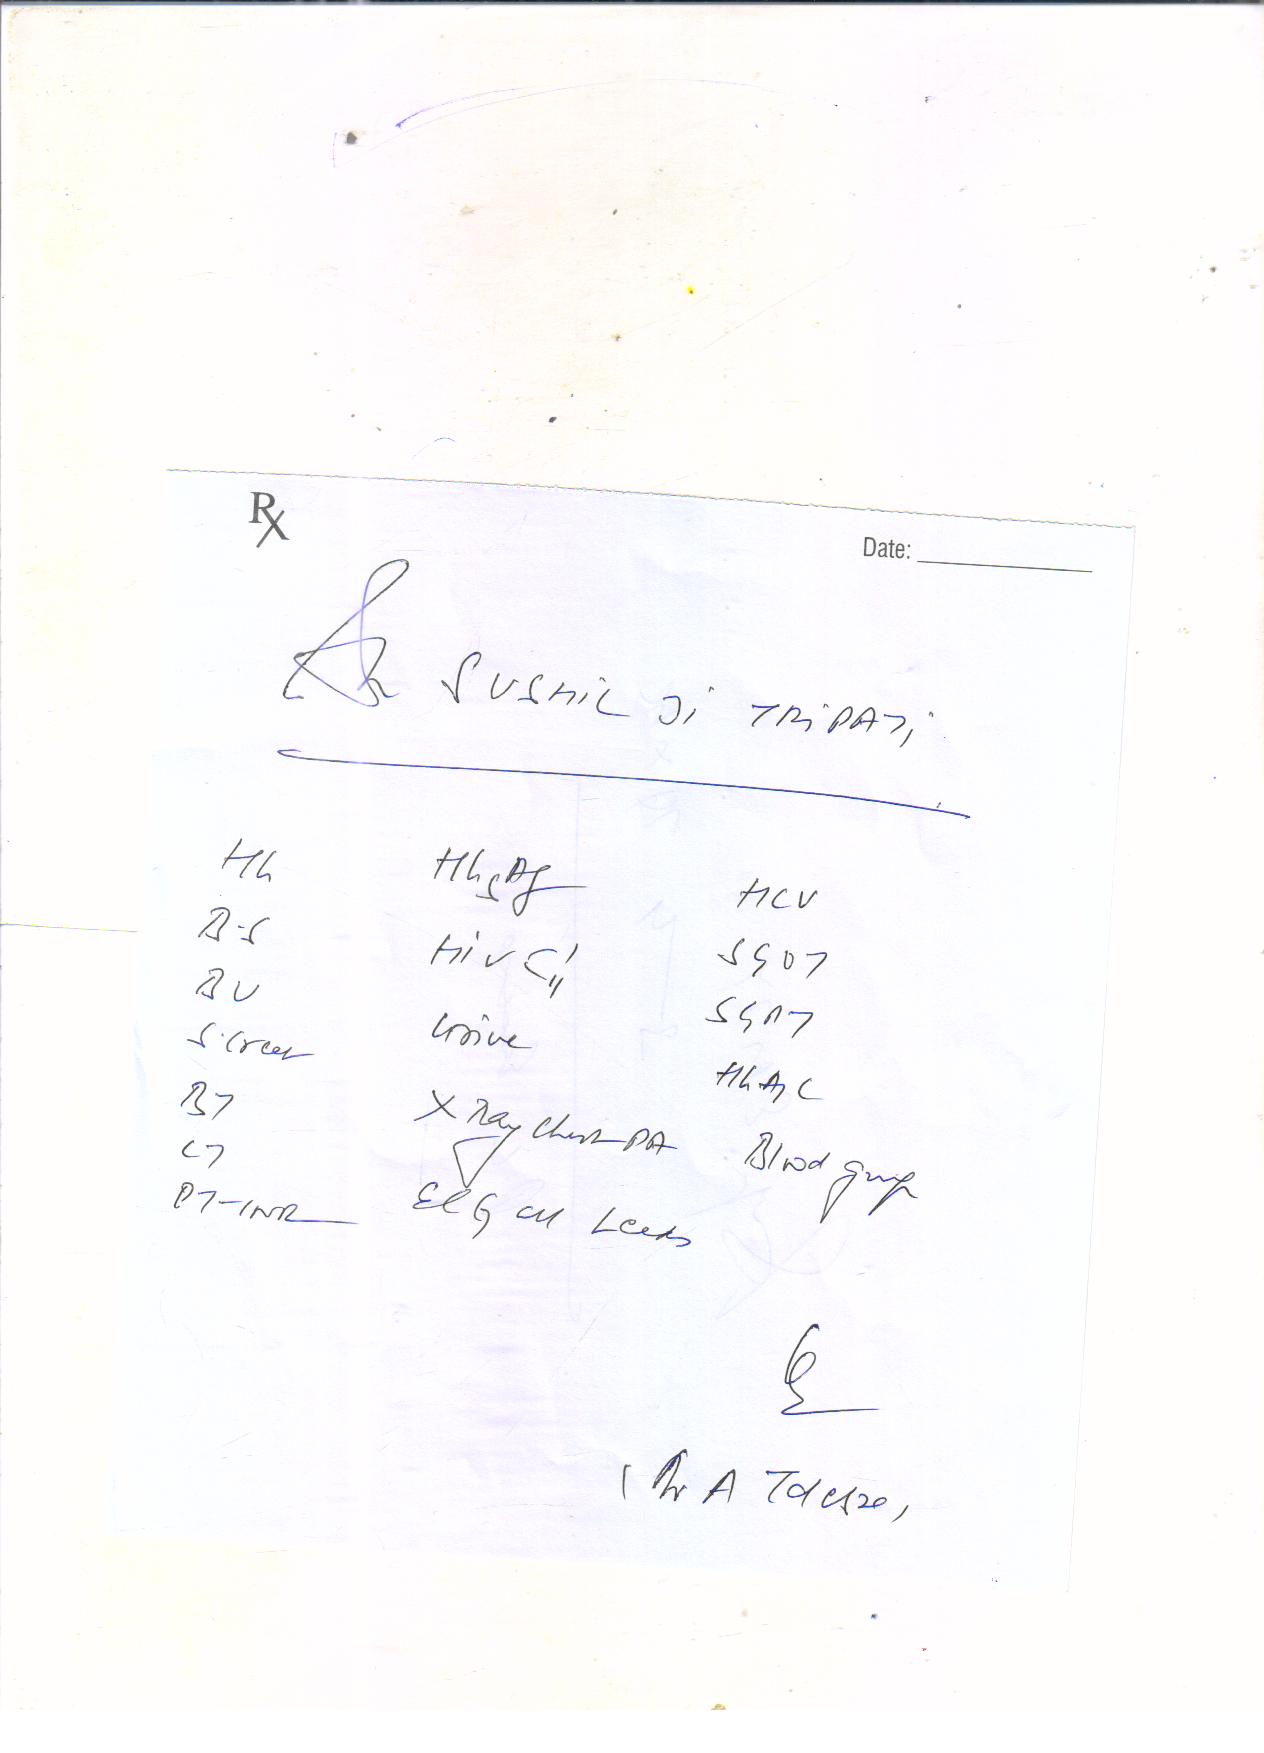 Rx
Date:
SUSHIL Ji TRiPATi
Hb HbsAg HCV
B-S HIV I, II SGOT
BU Urine SGPT
S. Creat X Ray Chest PA HbA1C
BT ECG all Leads Blood group
CT
PT-INR
(Dr A